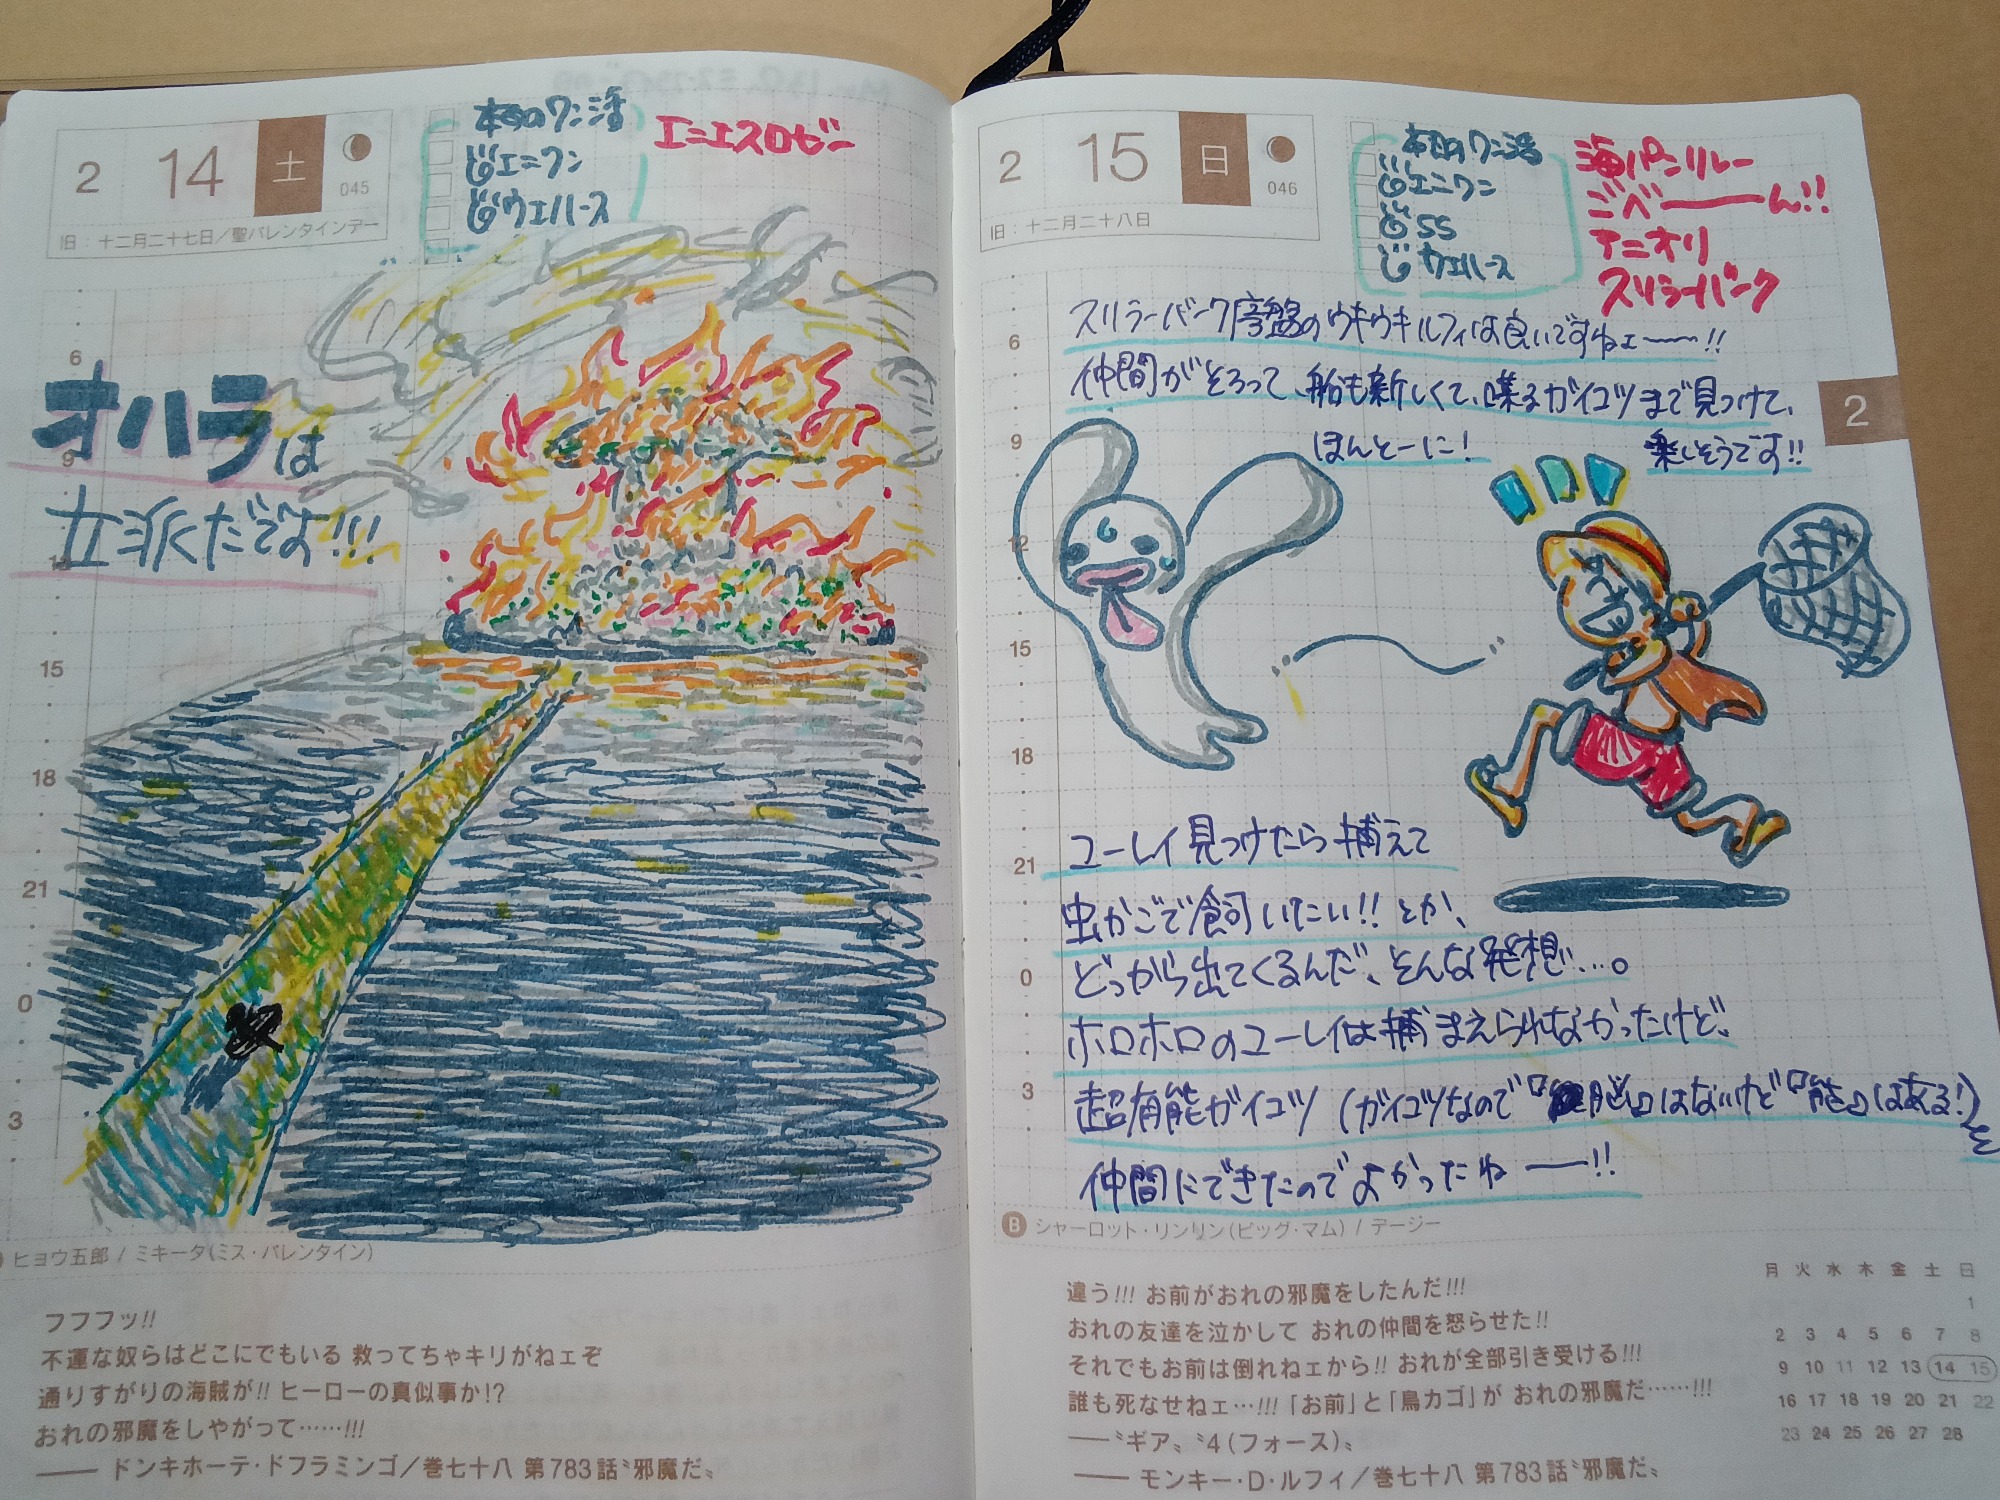 2 14 土
045
旧：十二月二十七日／聖バレンタインデー
本日のワン活
エニワン
ウエハース
エニエスロビー
オハラは
立派だです!!!
6
9
12
15
18
21
0
3
ヒョウ五郎 / ミキータ(ミス・バレンタイン)
フフフッ!!
不運な奴らはどこにでもいる 救ってちゃキリがねェぞ
通りすがりの海賊が!! ヒーローの真似事か!?
おれの邪魔をしやがって……!!!
―― ドンキホーテ・ドフラミンゴ／巻七十八 第783話〝邪魔だ〟
2 15 日
046
旧：十二月二十八日
本日のワン活
エニワン
SS
ウエハース
海パンリレー
ジベーーん!!
アニオリ
スリラーバーク
2
スリラーバーク序盤のウキウキルフィは良いですねェ〜〜!!
仲間がそろって、船も新しくて、喋るガイコツまで見つけて、
ほんとーに! 楽しそうです!!
6
9
12
15
18
21
0
3
ユーレイ見つけたら捕えて
虫かごで飼いたい!! とか、
どっから出てくるんだ、そんな発想…。
ホロホロのユーレイは捕まえられなかったけど、
超有能ガイコツ (ガイコツなので『脳』はないけど『能』はある!)を
仲間にできたのでよかったねー!!
B シャーロット・リンリン(ビッグ・マム) / デージー
違う!!! お前がおれの邪魔をしたんだ!!!
おれの友達を泣かして おれの仲間を怒らせた!!
それでもお前は倒れねェから!! おれが全部引き受ける!!!
誰も死なせねェ…!!!「お前」と「鳥カゴ」が おれの邪魔だ……!!!
―〝ギア〟〝4(フォース)〟
―― モンキー・D・ルフィ／巻七十八 第783話〝邪魔だ〟
月 火 水 木 金 土 日
1
2 3 4 5 6 7 8
9 10 11 12 13 14 15
16 17 18 19 20 21 22
23 24 25 26 27 28